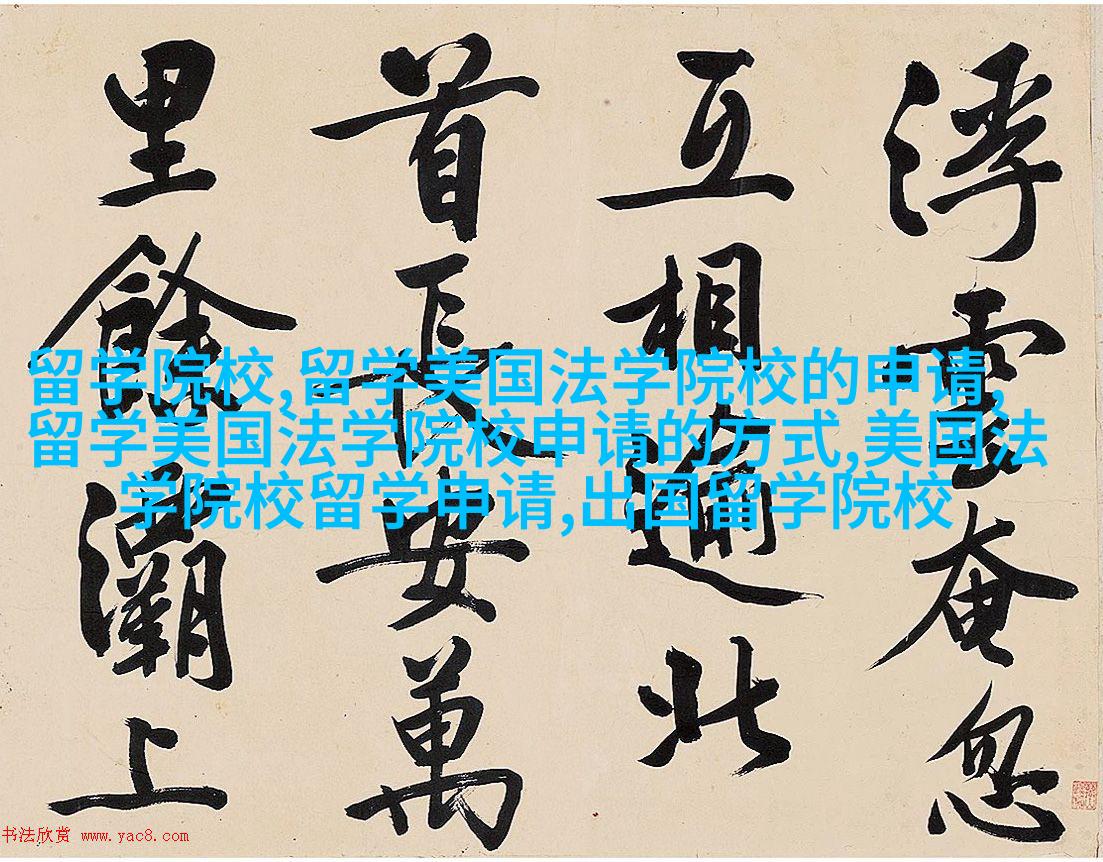 浮雲奄忽
互相逾北
首長安萬
里餘灞上
留学院校,留学美国法学院校的申请,
留学美国法学院校申请的方式,美国法
学院校留学申请,出国留学院校
书法欣赏 www.yac8.com